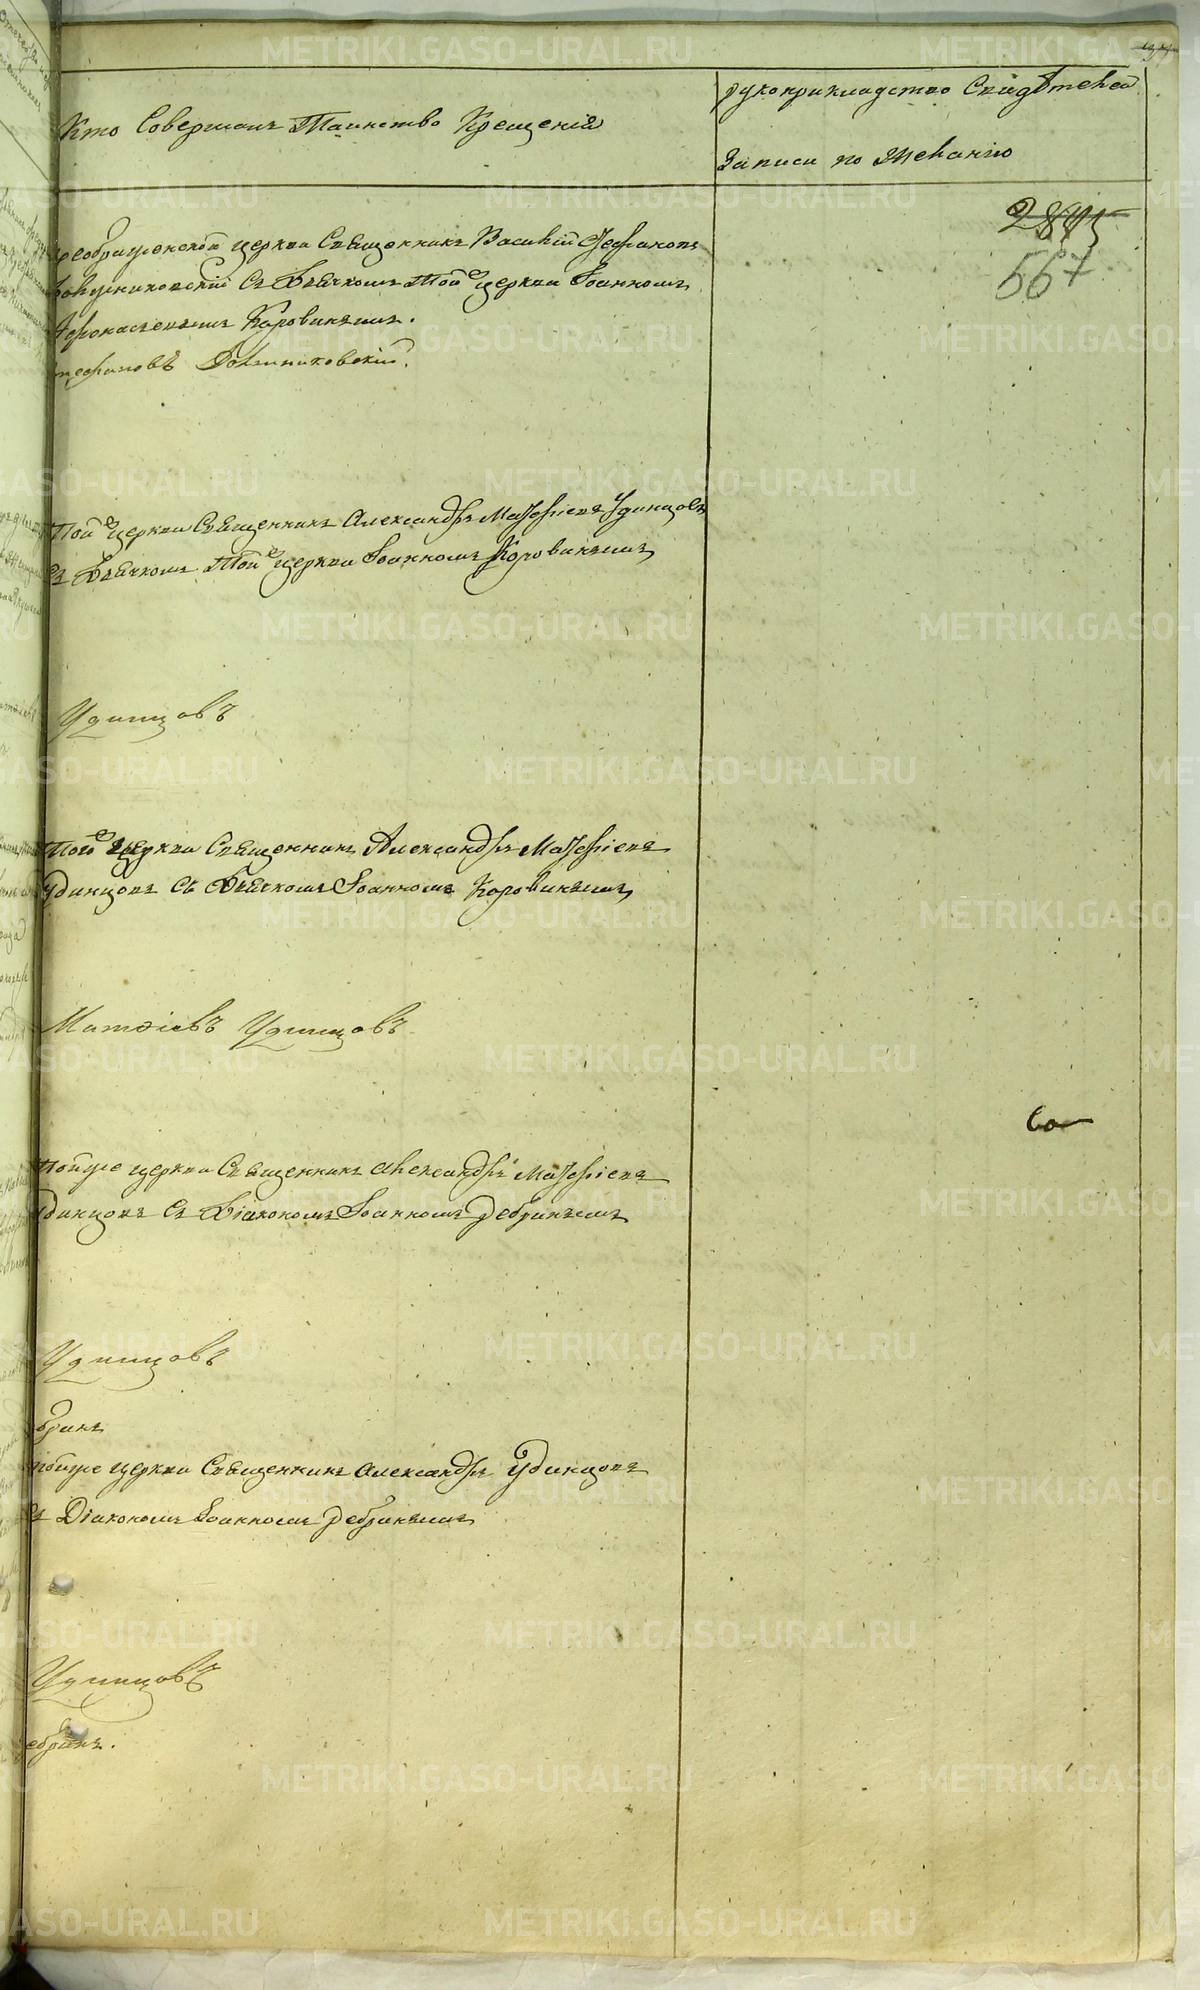 Кто Совершалъ Таинство Крещенія
рукоприкладство Свидѣтелей
Записи по Желанію
2881
567
реображенской церкви Священникъ Василій Стефановъ
Съ Дьячкомъ Той же церкви Іоанномъ
Коровинымъ.
Той же церкви Священникъ Александръ Матѳіевъ Удинцовъ
Съ Дьячкомъ Той же церкви Іоанномъ Коровинымъ
Удинцовъ
Той же церкви Священникъ Александръ Матѳіевъ
Удинцовъ Съ Дьячкомъ Іоанномъ Коровинымъ
Матѳіевъ Удинцовъ
Тойже церкви Священникъ Александръ Матѳіевъ
динцовъ Съ Діакономъ Іоанномъ Ребринымъ
Удинцовъ
бринъ
тойже церкви Священникъ Александръ Удинцовъ
Съ Діакономъ Іоанномъ Ребринымъ
Удинцовъ
ебринъ.
METRIKI.GASO-URAL.RU